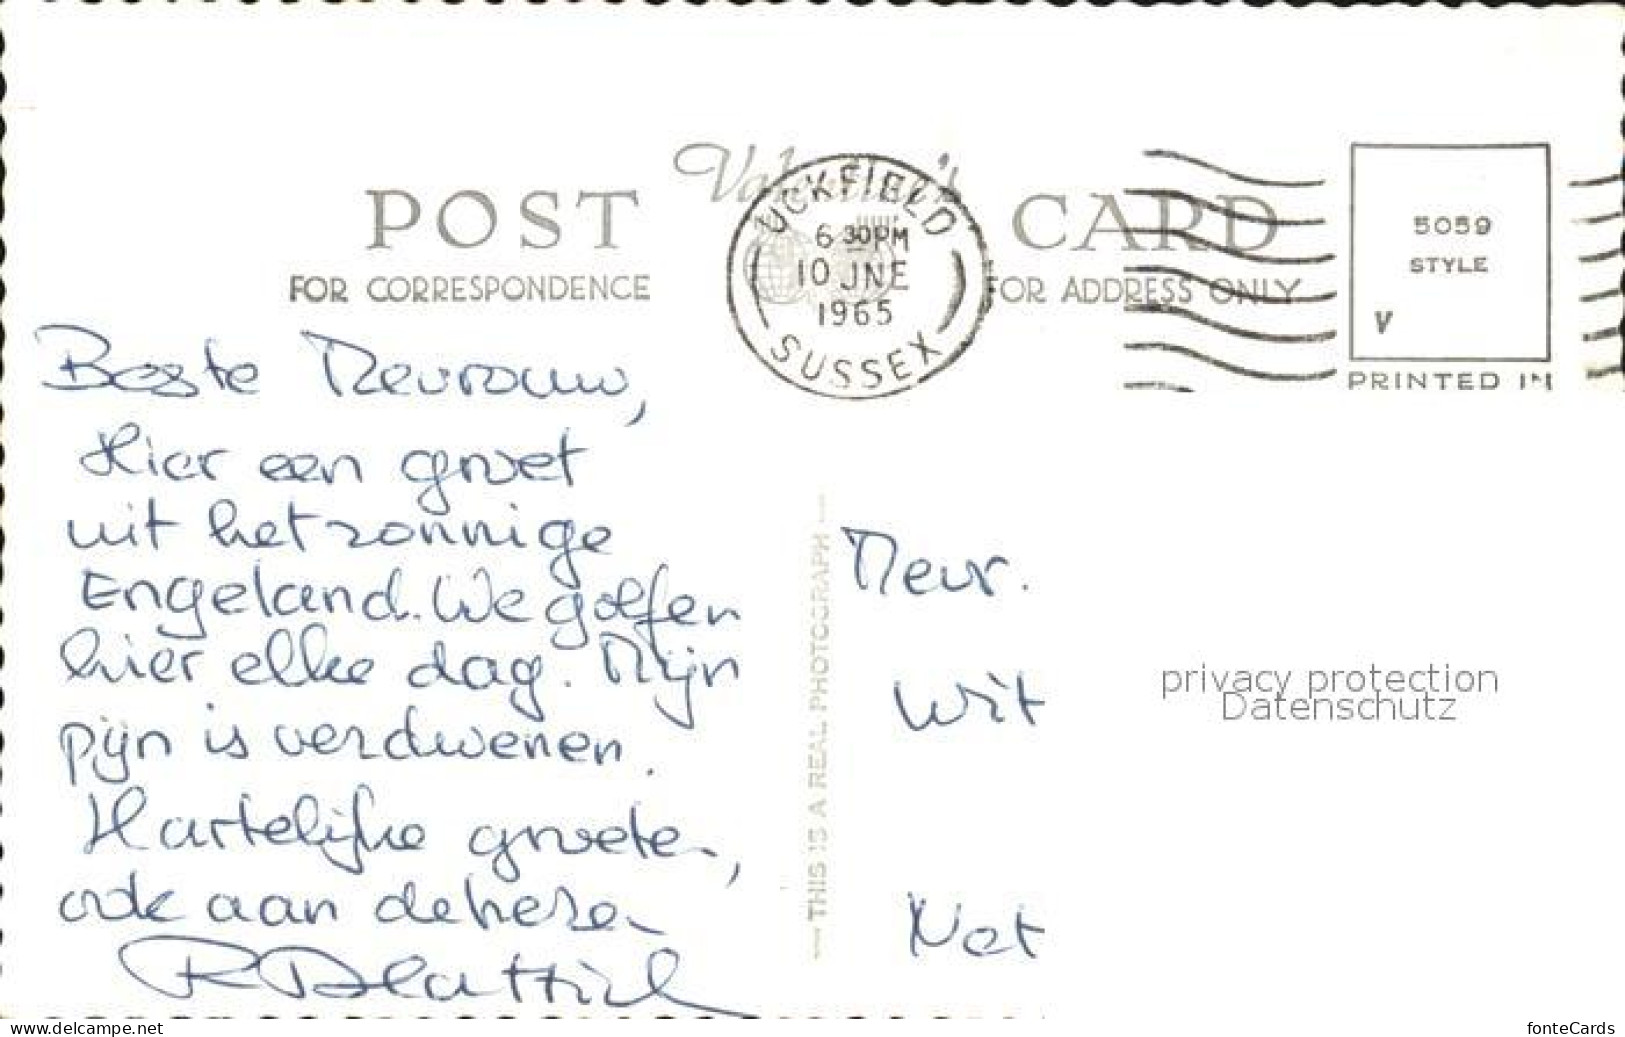 Valentine's
POST CARD
FOR CORRESPONDENCE
FOR ADDRESS ONLY
UCKFIELD
6 30 PM
10 JNE
1965
SUSSEX
5059
STYLE
V
PRINTED IN
Beste Mevrouw,
Hier een groet
uit het zonnige
Engeland. We golfen
hier elke dag. Mijn
pijn is verdwenen.
Hartelijke groeten,
ook aan de heren
— THIS IS A REAL PHOTOGRAPH —
Mevr.
Wit
privacy protection
Datenschutz
www.delcampe.net
fonteCards